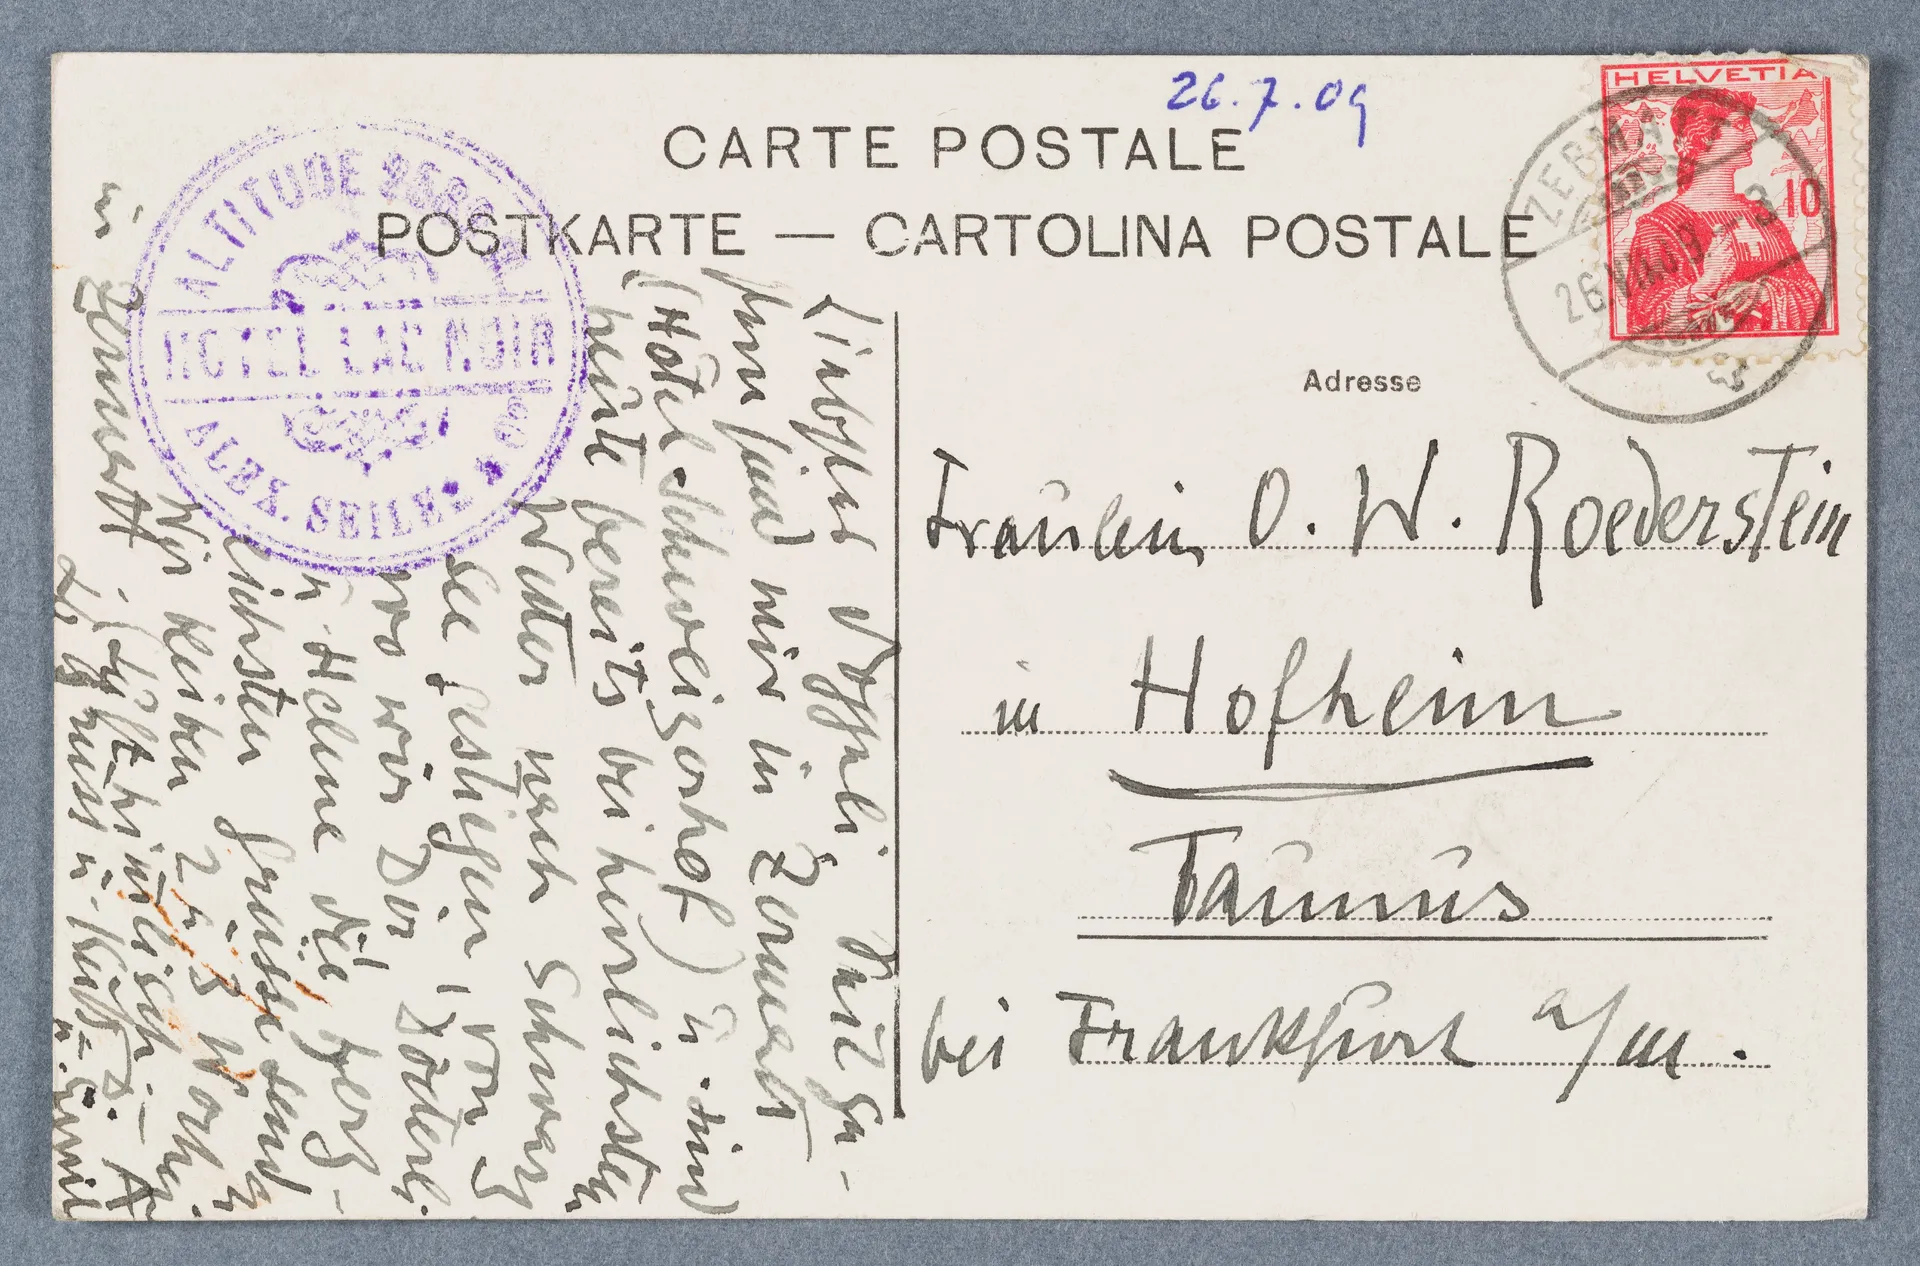 26.7.09
CARTE POSTALE
POSTKARTE — CARTOLINA POSTALE
HELVETIA
10
ZERMATT
26.VII.09.–3
ALTITUDE
HOTEL LAC NOIR
ALEX. SEILER
Adresse
Fräulein O. W. Roederstein
in Hofheim
Taunus
bei Frankfurt a/m.
Liebstes
sind wir in Zermatt
(Hotel Schweizerhof) u. sind
heute bereits bei herrlichsten
Wetter nach Schwarz
see gestiegen, von
wo wir Dir
u Helene die Berg-
lichsten Grüsse send
Wir bleiben 2 à 3 Wochen
in Zermatt
Gruss u. Kuss